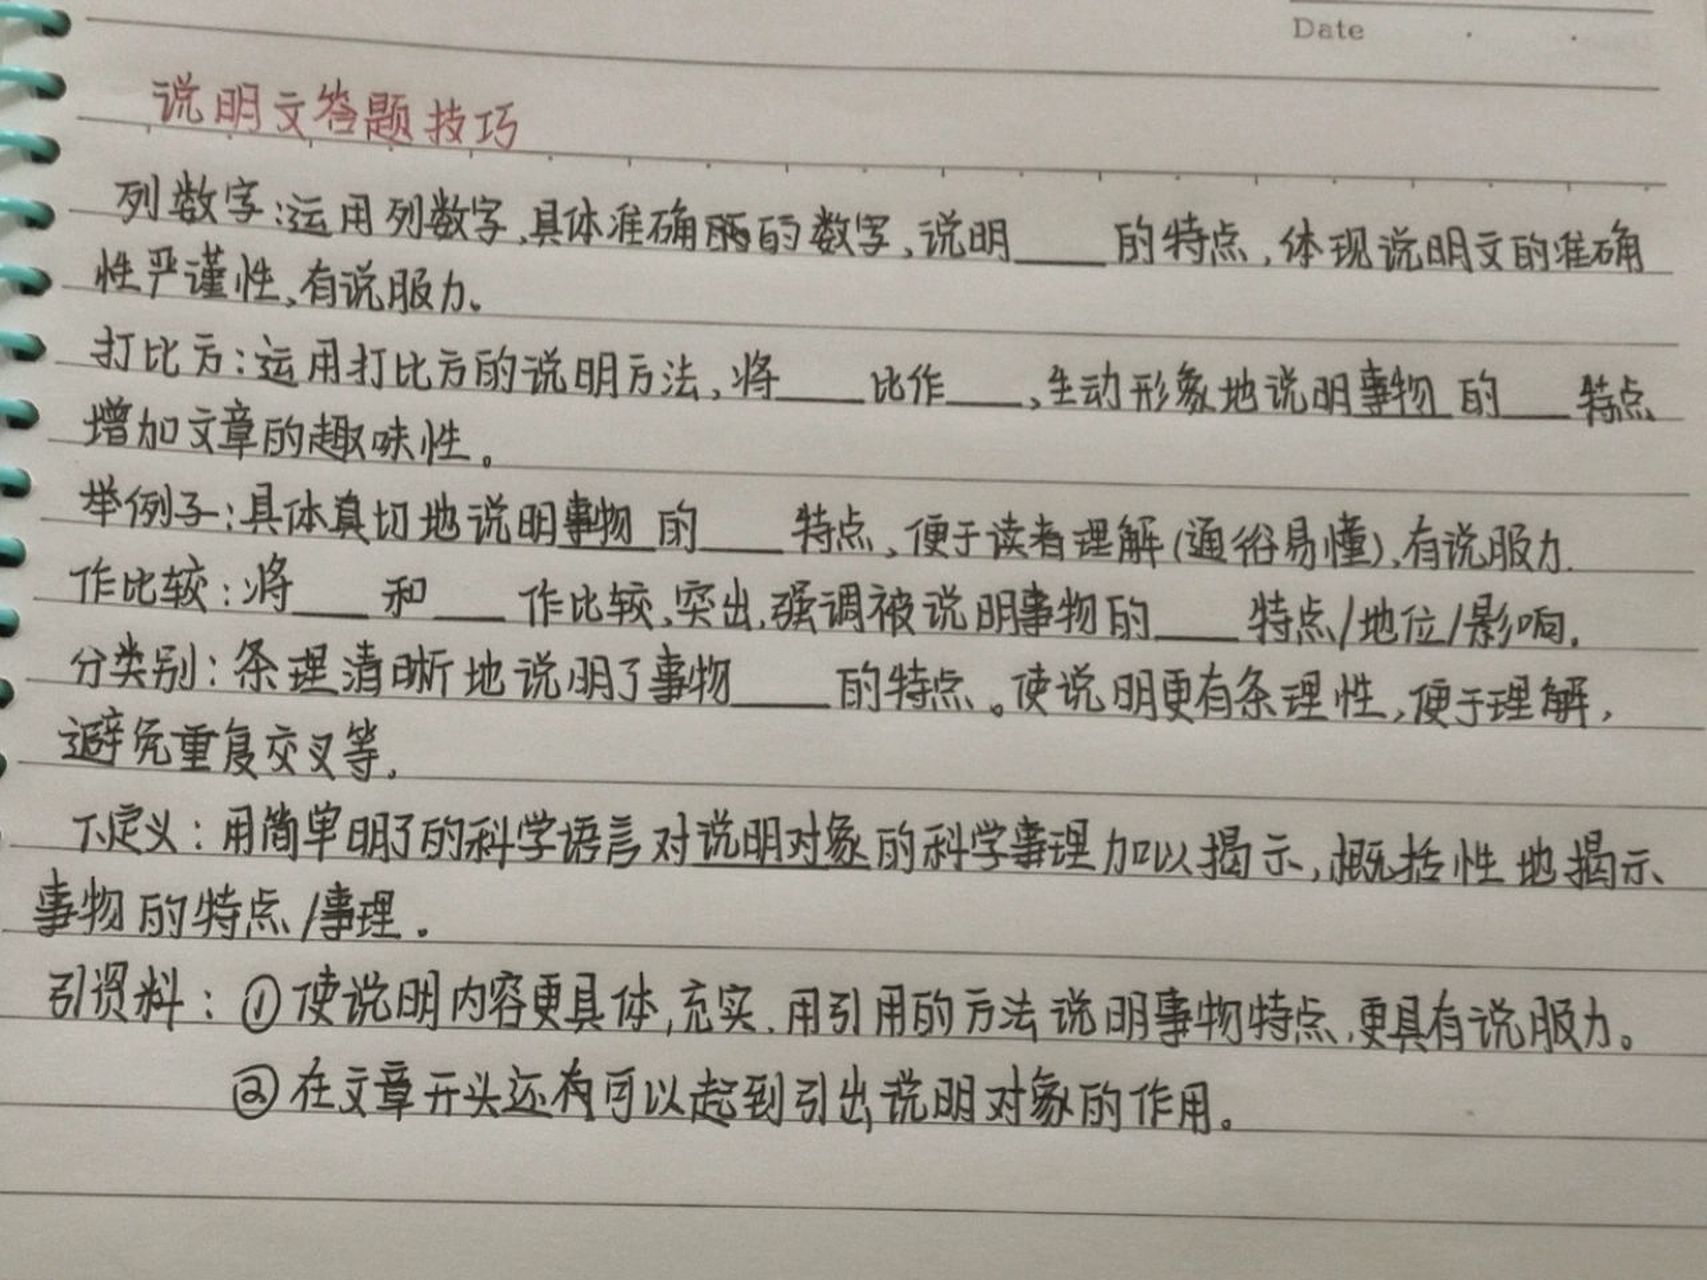 Date
说明文答题技巧
列数字:运用列数字,具体准确的数字,说明____的特点,体现说明文的准确
性严谨性,有说服力。
打比方:运用打比方的说明方法,将____比作____,生动形象地说明事物的____特点
增加文章的趣味性。
举例子:具体真切地说明事物的____特点,便于读者理解(通俗易懂),有说服力.
作比较:将____和____作比较,突出,强调被说明事物的____特点/地位/影响.
分类别:条理清晰地说明了事物____的特点。使说明更有条理性,便于理解,
避免重复交叉等.
下定义:用简单明了的科学语言对说明对象的科学事理加以揭示,概括性地揭示
事物的特点/事理.
引资料:①使说明内容更具体,充实.用引用的方法说明事物特点,更具有说服力。
②在文章开头还有可以起到引出说明对象的作用。